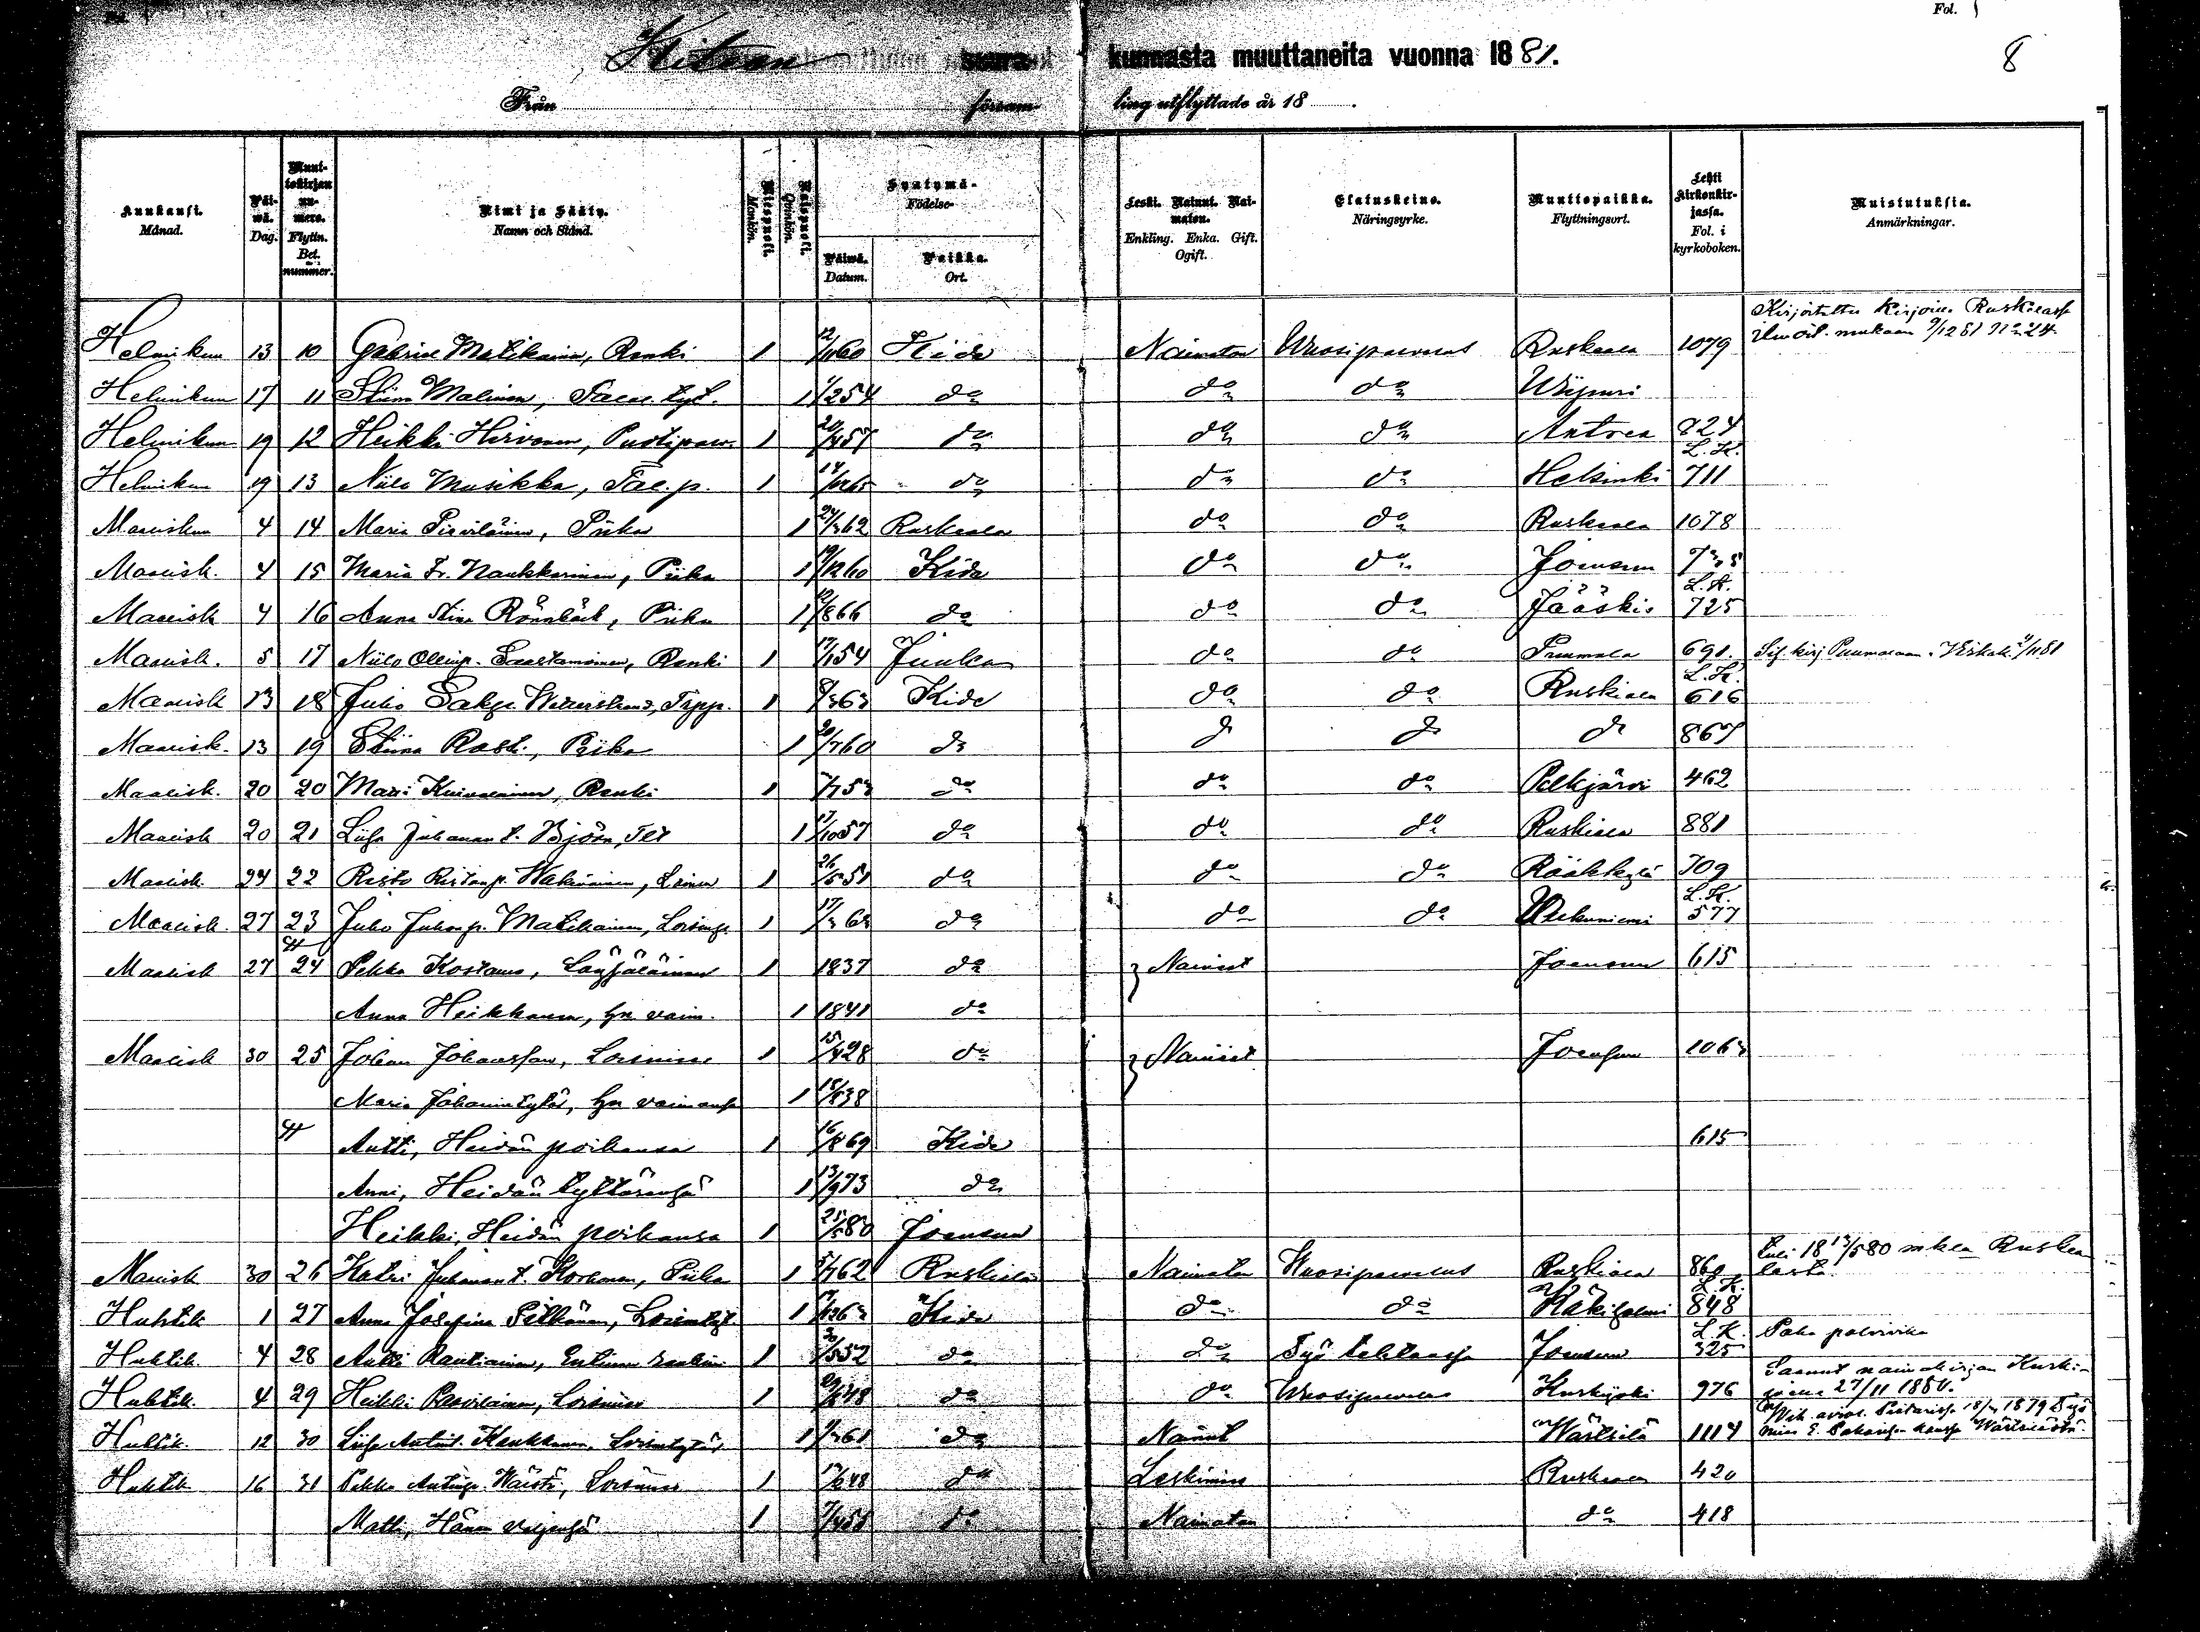 Fol.
8
Kiteen seurakunnasta muuttaneita vuonna 1881.
Från försam-ling utflyttade år 18
Kuukausi. Månad.
Päiwä. Dag.
Muuttokirjan numero. Flyttn. Bet. nummer.
Nimi ja Sääty. Namn och Stånd.
Miespuoli. Mankön.
Naispuoli. Qvinkön.
Syntymä- Födelse-
Päiwä. Datum.
Paikka. Ort.
Leski. Nainut. Naimaton. Enkling. Enka. Gift. Ogift.
Elatuskeino. Näringsyrke.
Muuttopaikka. Flyttningsort.
Lehti kirkonkirjassa. Fol. i kyrkoboken.
Muistutuksia. Anmärkningar.
Helmikuu 13 10 Gabriel Matikainen, Renki 1 60 Kide Naimaton Wuosipalvelus Ruskeala 1079 Kirjoitettu kirjoihin Ruskealassa ilmoit. mukaan 9/12 81 No 24.
Helmikuu 17 11 Stiina Malinen, 1 1/2 54 do do do Wiipuri
Helmikuu 19 12 Heikki Hirvonen, 1 20/4 57 do do do Antrea 724
Helmikuu 19 13 Niilo Musikka, Tal. p. 1 do do do Helsinki L.K. 711
Maaliskuu 4 14 Maria Pirviläinen, Piika 1 24/3 62 Ruskeala do do Ruskeala 1078
Maalisk. 4 15 Maria Fr. Naukkarinen, Piika 1 19/12 60 Kide do do Joensuu
Maalisk 4 16 Anna Stina Rönnbäck, Piika 1 /8 66 do do do Jääskis L.K. 725
Maalisk. 5 17 Niilo Ollinp. Saastamoinen, Renki 1 17/1 54 Juuka do do Puumala 691.
Maalisk 13 18 Juho 1 8/3 63 Kide do do Ruskeala L.K. 616
Maalisk. 13 19 Stiina Rosti, Piika 1 20/7 60 do do do do 867
Maalisk. 20 20 Matti Kuivalainen, Renki 1 do do do Pelkjärvi 462
Maalisk 20 21 Liisa Juhanan t. Björn, 1 17/10 57 do do do Ruskeala 881
Maalisk. 24 22 Risto Ristonp. Wakivainen, 1 26/5 51 do do do Rääkkylä 709
Maalisk. 27 23 Juho Juhonp. Matikainen, 1 17/3 63 do do do Uukuniemi L.K. 577
Maalisk 27 24 Pekka Kostamo, 1 1837 do Naineet Joensuu 615
Anna Heikkanen, hn vaim. 1 1841 do
Maalisk 30 25 Johan Johansson, Loismies 1 15/4 28 do Naineet Joensuu 1063
Maria Johanintytär, hn vaimonsa 1 18/8 38
Antti, Heidän poikansa 1 16/8 69 Kide 615
Anni, Heidän tyttärensä 1 13/9 73 do
Heikki, Heidän poikansa 1 25/5 80 Joensuu
Maalisk 30 26 Katri Juhanan t. Korhonen, Piika 1 5/7 62 Ruskeala Naimaton Wuosipalvelus Ruskeala 860 tuli 18 13/5 80 mkla Ruskealasta.
Huhtik 1 27 Anna Josefina Pitkänen, Loisentyt 1 Kide do do Käkisalmi L.K. 848
Huhtik. 4 28 Antti Rautiainen, 1 30/5 52 do do Työ tehtaassa Joensuu L.K. 325 Paha polvivika
Huhtik. 4 29 Heikki Pesvilainen, Loismies 1 do do Wuosipalvelus Kurkijoki 976 Saanut nainakirjan Kurkijoelle 27/11 1880.
Huhtik. 12 30 Liisa Antint. Kaukkanen, Loisentytär 1 do Nainut Wärtsilä 1114
Huhtik 16 31 Pekka Antinp. Wäistö, Loismies 1 17/6 48 do Leskimies Ruskeala 420
Matti, Hänen veljensä 1 do Naimaton do 418